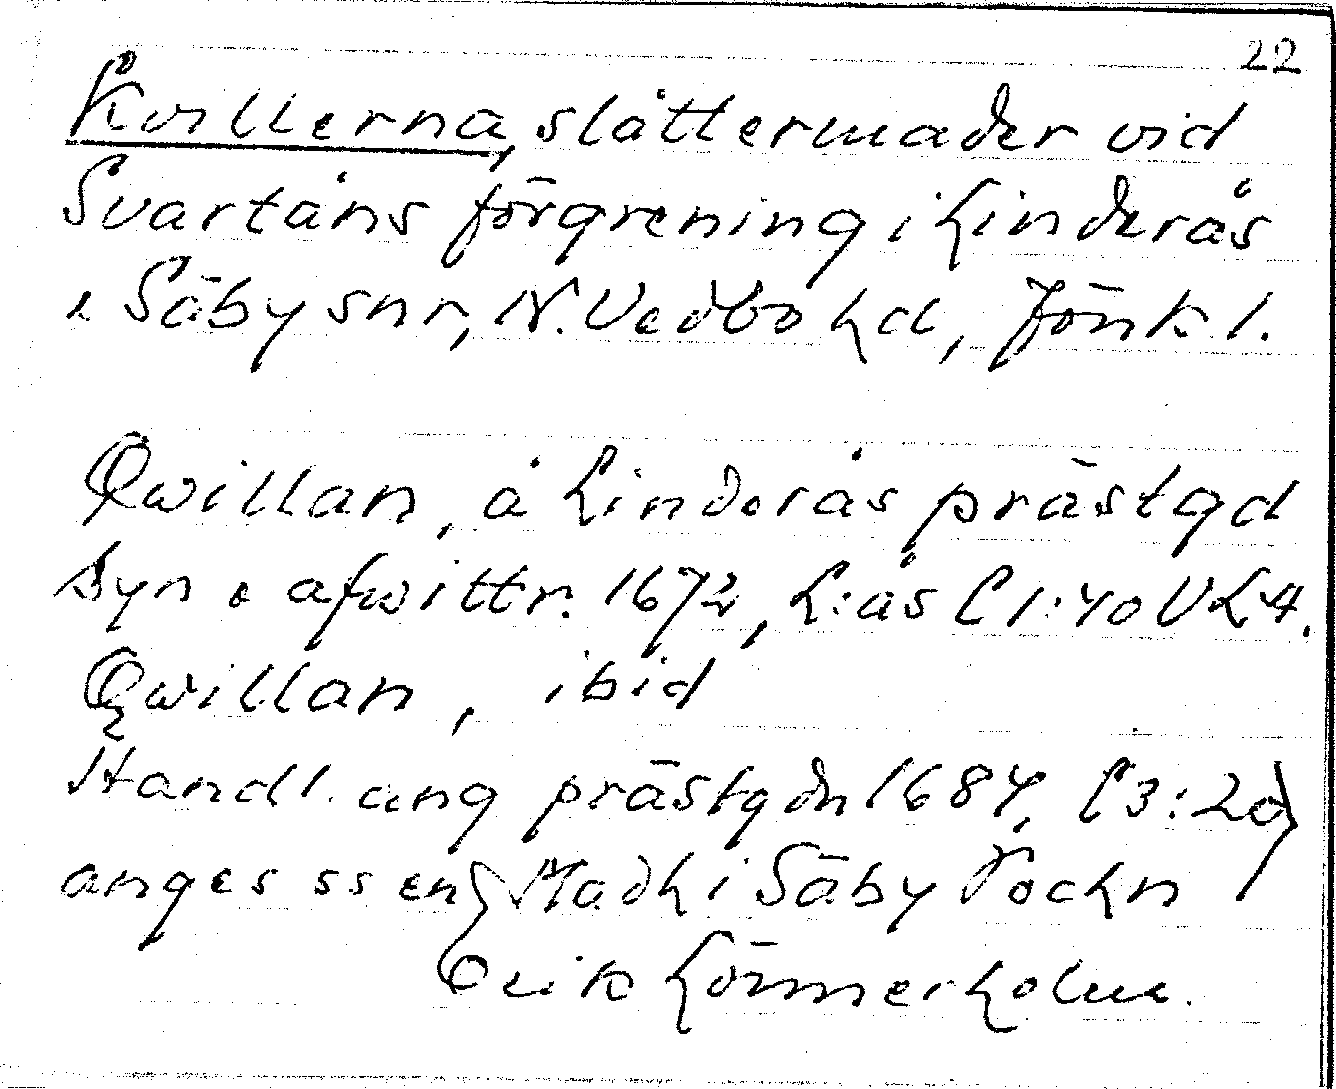 22
Kvillerna, slåttermader vid
Svartåns förgrening i Linderås
o Säby snr, N. Vedbo hd, Jönk l.
Qwillan, å Linderås prästgd
Syn o afwittr. 1672, L:ås C 1:40 VLA.
Qwillan, ibid
Handl. ang prästgdn 1684, C3:2d
anges ss en Madh i Säby Sochn
Erik Lönnerholm.